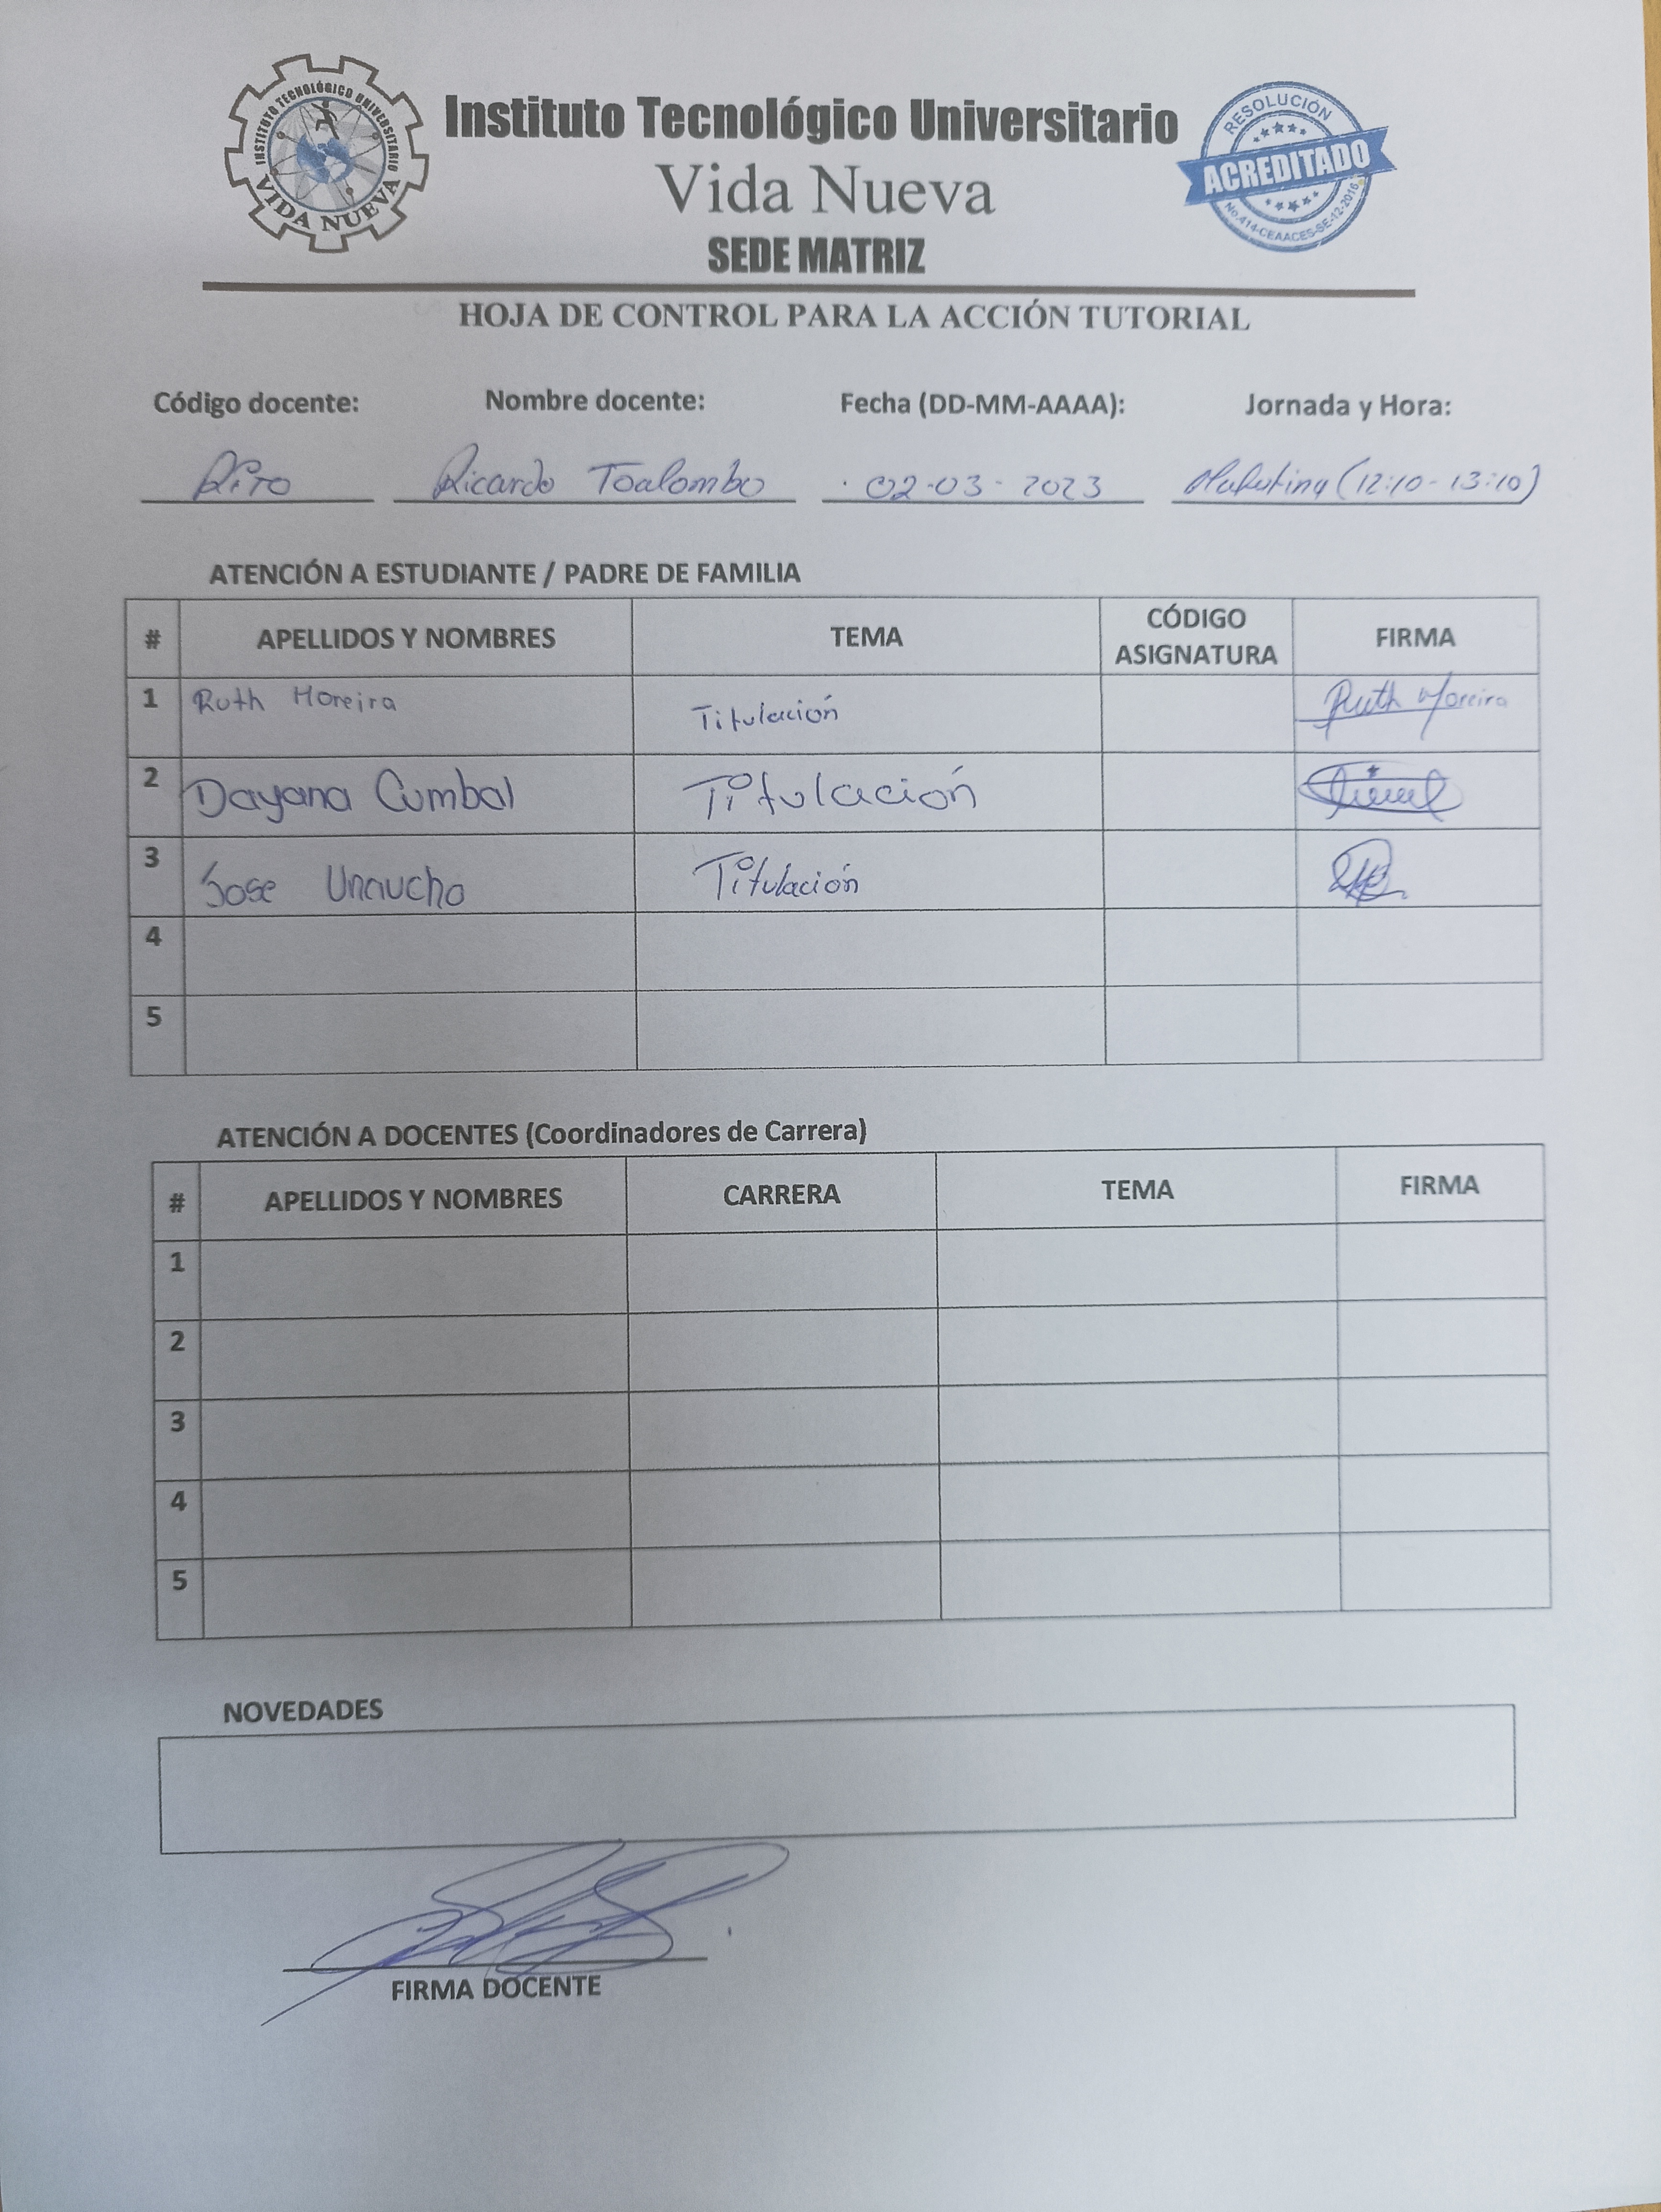 INSTITUTO TECNOLÓGICO UNIVERSITARIO
VIDA NUEVA
Instituto Tecnológico Universitario
Vida Nueva
SEDE MATRIZ
RESOLUCIÓN
ACREDITADO
No.414-CEAACES-SE-12-2016
HOJA DE CONTROL PARA LA ACCIÓN TUTORIAL
Código docente: Nombre docente: Fecha (DD-MM-AAAA): Jornada y Hora:
Ricardo Toalombo 02-03-2023 Matutina (12:10-13:10)
ATENCIÓN A ESTUDIANTE / PADRE DE FAMILIA
# APELLIDOS Y NOMBRES TEMA CÓDIGO ASIGNATURA FIRMA
1 Ruth Moreira Titulación Ruth Moreira
2 Dayana Cumbal Titulación
3 Jose Unaucho Titulación
4
5
ATENCIÓN A DOCENTES (Coordinadores de Carrera)
# APELLIDOS Y NOMBRES CARRERA TEMA FIRMA
1
2
3
4
5
NOVEDADES
FIRMA DOCENTE